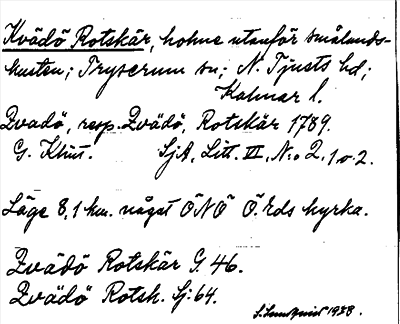 Kvädö Rotskär, holme utanför smålands-
kusten; Tryserum sn; N. Tjusts hd;
Kalmar l.
Zvadö, resp. Zvädö, Rotskär 1789.
G. Klint. SjA, Litt. VI, N:o 2, 1 o. 2.
Läge 8,1 km. något ÖNÖ Ö.rds kyrka.
Zvädö Rotskär G. 46.
Zvädö Rotsk. Sj: 64.
1928.